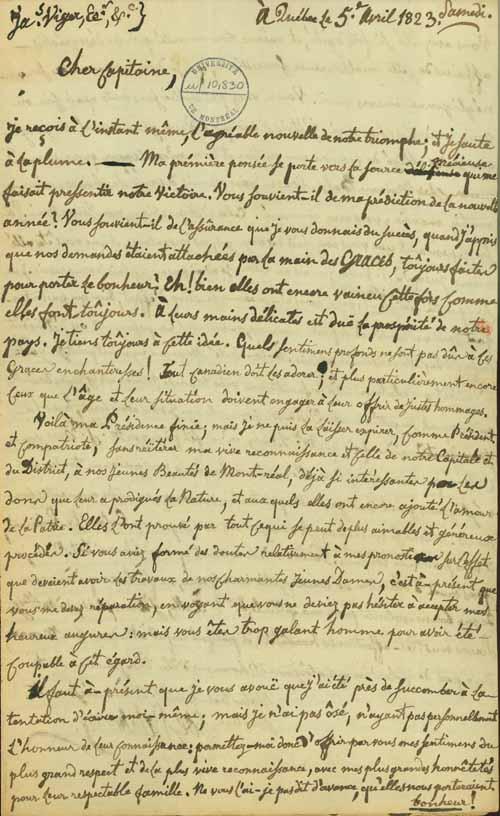 Jas. Viger, Ecr. &c. }
À Québec le 5e. Avril 1823. Samedi.
Cher Capitaine,
UNIVERSITÉ
10,830
DE MONTRÉAL
Je reçois à l'instant même, l'agréable nouvelle de notre triomphe; et je saute
à la plume. — Ma prémière pensée se porte vers la source précieuse que me
faisait pressentir notre Victoire. Vous souvient-il de ma prédiction de la nouvelle
année? Vous souvient-il de l'assûrance que je vous donnais du succès, quand j'appris
que nos demandes êtaient attachées par la main des GRACES, toûjours faites
pour porter le bonheur? Eh! bien elles ont encore vaincu cette fois comme
elles font toûjours. À leurs mains délicates est duë la prospérité de notre
pays. Je tiens toûjours à cette idée. Quels sentimens profonds ne sont pas dûs à ces
Graces enchanteresses! Tout Canadien doit les adorer; et plus particulièrement encore
ceux que l'âge et leur situation doivent engager à leur offrir de justes hommages.
Voilà ma Présidence finie; mais je ne puis la laisser expirer, comme Président,
et compatriote, sans réitérer ma vive reconnaissance et celle de notre Capitale et
du District, à nos jeunes Beautés de Mont-réal, déjà si intéressantes par les
dons que leur a prodigués la Nature, et auxquels elles ont encore ajoûté l'amour
de la Patrie. Elles l'ont prouvé par tout ce qui se peut de plus aimables et généreux
procédés. Si vous aviez formé des doutes relativement à mes pronostics sur l'effet
que devaient avoir les travaux de nos charmantes jeunes Dames, c'est à-présent que
vous me devez réparation, en voyant que vous ne deviez pas hésiter à accepter mes
heureux augures: mais vous êtes trop galant homme pour avoir été
coupable à cet égard.
Il faut à-présent que je vous avouë que j'ai été près de succomber à la
tentation d'écrire moi-même; mais je n'ai pas ôsé, n'ayant pas personnellement
l'honneur de leur connaissance: permettez-moi donc d'offrir par vous mes sentimens du
plus grand respect et de la plus vive reconnaissance, avec mes plus grandes honnêtetés
pour leur respectable famille. Ne vous l'ai-je pas dit d'avance, qu'elles nous porteraient
bonheur!